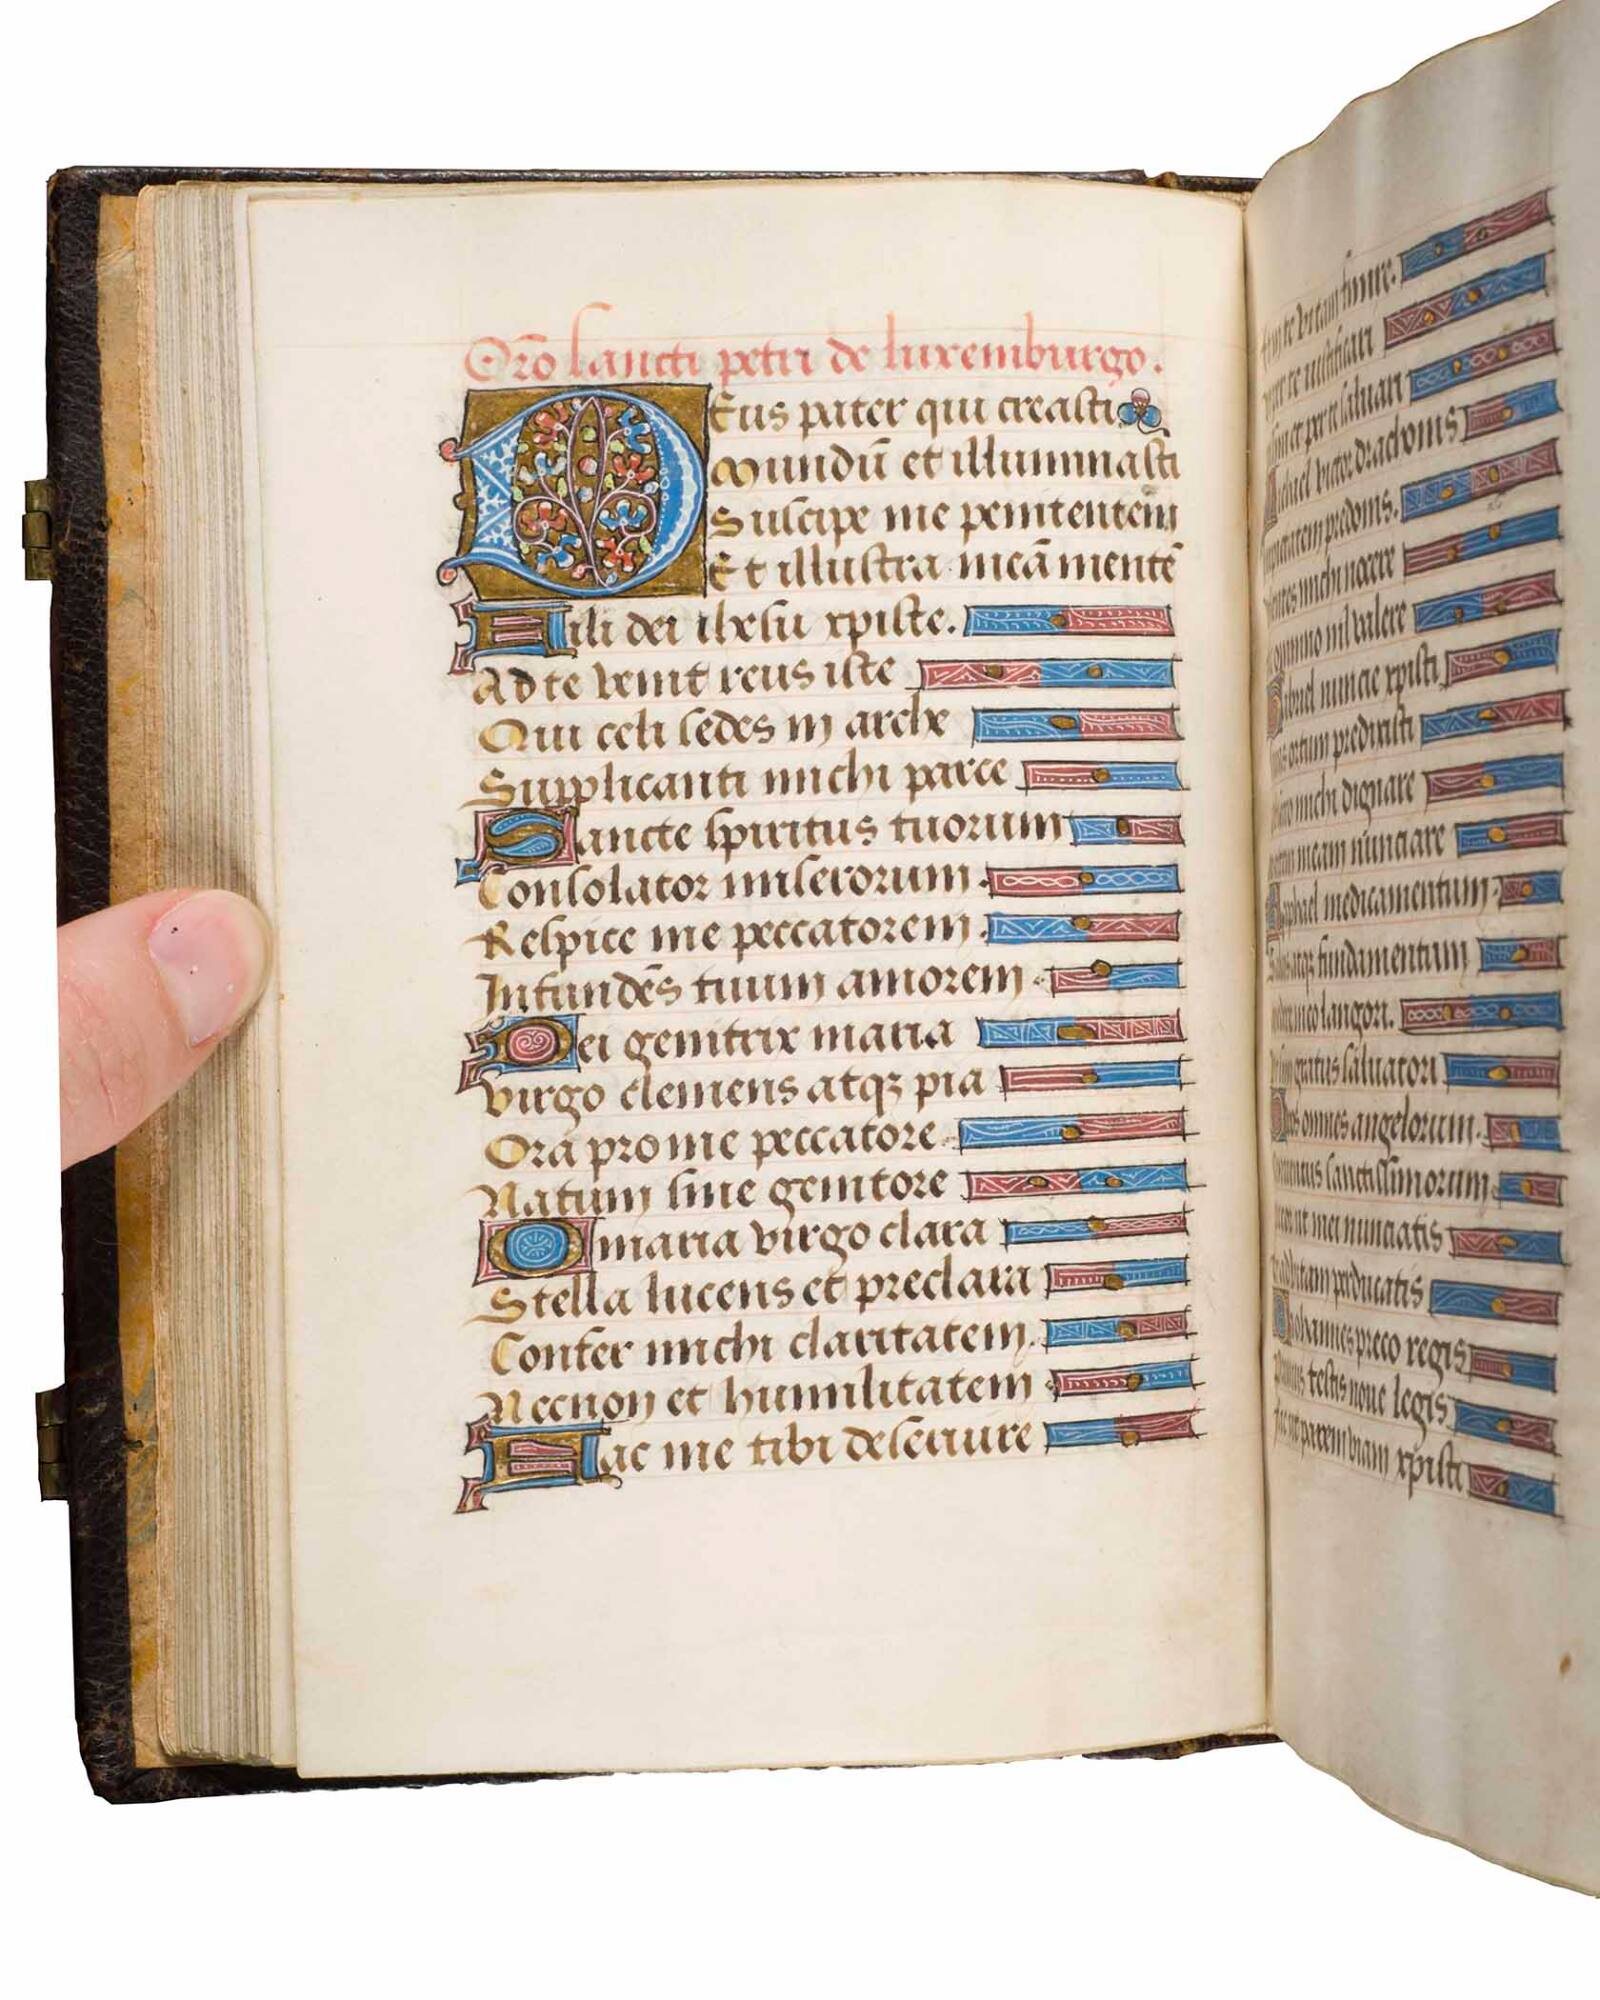 Oro sancti petri de luxemburgo.
Deus pater qui creasti
Mundū et illuminasti
Suscipe me penitentem
Et illustra meā mentē
Fili dei ihesu xpiste.
Ad te venit reus iste
Qui celi sedes in arche
Supplicanti michi parce
Sancte spiritus tuorum
Consolator miserorum.
Respice me peccatorem.
Infundēs tuum amorem.
Dei genitrix maria
Virgo clemens atqꝫ pia
Ora pro me peccatore.
Natum sine genitore
O maria virgo clara
Stella lucens et preclara
Confer michi claritatem.
Necnon et humilitatem.
Fac me tibi deseruire
te vitam finire.
te iustificari
et per te saluari
Michael victor drachonis
predonis.
michi nocere
valere
Gabriel nuncie xpisti
ortum predixisti
michi dignare
meam nunciare
Raphael medicamentum.
fundamentum
langori.
gratus saluatori
Vos omnes angelorum.
sanctissimorum
ut mei nunciatis
perducatis
Iohannes preco regis
testis noue legis
viam xpisti